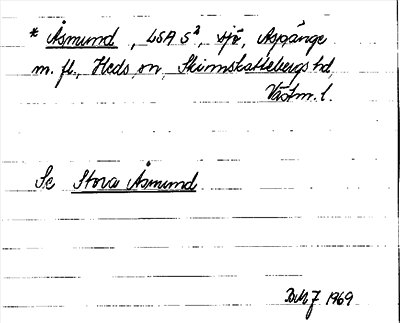 * Åsmund, LSA S², sjö, Aspänge
m. fl., Heds sn, Skinnskattebergs hd,
Västm. l.
Se Stora Åsmund
1969